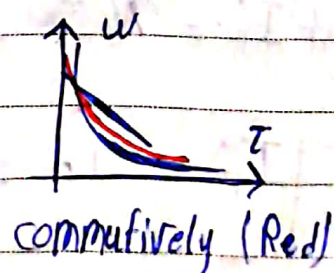 w
τ
commutively (Red)